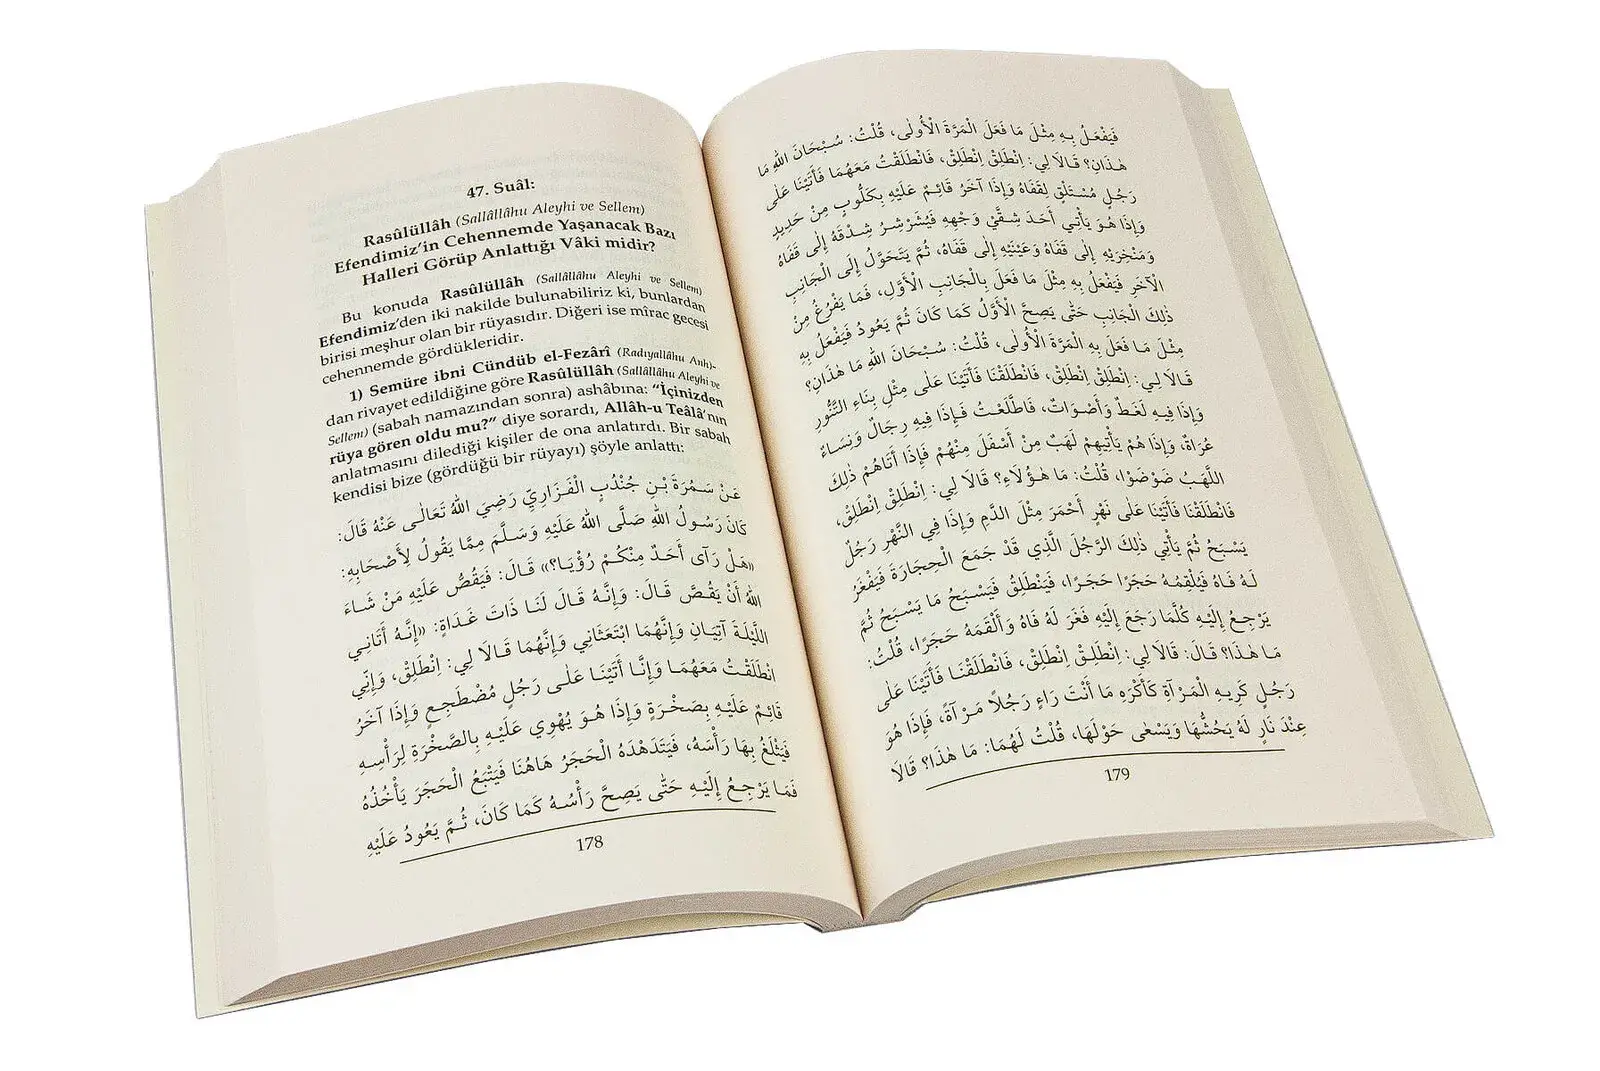 47. Suâl:
Rasûlüllâh (Sallâllâhu Aleyhi ve Sellem)
Efendimiz’in Cehennemde Yaşanacak Bazı
Halleri Görüp Anlattığı Vâki midir?
Bu konuda Rasûlüllâh (Sallâllâhu Aleyhi ve Sellem)
Efendimiz’den iki nakilde bulunabiliriz ki, bunlardan
birisi meşhur olan bir rüyasıdır. Diğeri ise mîrac gecesi
cehennemde gördükleridir.
1) Semüre ibni Cündüb el-Fezârî (Radıyallâhu Anh)-
dan rivayet edildiğine göre Rasûlüllâh (Sallâllâhu Aleyhi ve
Sellem) (sabah namazından sonra) ashâbına: “İçinizden
rüya gören oldu mu?” diye sorardı, Allâh-u Teâlâ’nın
anlatmasını dilediği kişiler de ona anlatırdı. Bir sabah
kendisi bize (gördüğü bir rüyayı) şöyle anlattı:
عَنْ سَمُرَةَ بْنِ جُنْدُبٍ الْفَزَارِيِّ رَضِيَ اللّٰهُ تَعَالٰى عَنْهُ قَالَ:
كَانَ رَسُولُ اللّٰهِ صَلَّى اللّٰهُ عَلَيْهِ وَسَلَّمَ مِمَّا يَقُولُ لِأَصْحَابِهِ:
«هَلْ رَآى أَحَدٌ مِنْكُمْ رُؤْيَا؟» قَالَ: فَيَقُصُّ عَلَيْهِ مَنْ شَاءَ
اللّٰهُ أَنْ يَقُصَّ قَالَ: وَإِنَّهُ قَالَ لَنَا ذَاتَ غَدَاةٍ: «إِنَّهُ أَتَانِي
اللَّيْلَةَ آتِيَانِ وَإِنَّهُمَا ابْتَعَثَانِي وَإِنَّهُمَا قَالَا لِي: اِنْطَلِقْ، وَإِنِّي
انْطَلَقْتُ مَعَهُمَا وَإِنَّا أَتَيْنَا عَلٰى رَجُلٍ مُضْطَجِعٍ وَإِذَا آخَرُ
قَائِمٌ عَلَيْهِ بِصَخْرَةٍ وَإِذَا هُوَ يُهْوِي عَلَيْهِ بِالصَّخْرَةِ لِرَأْسِهِ
فَيَثْلَغُ بِهَا رَأْسَهُ، فَيَتَدَهْدَهُ الْحَجَرُ هَاهُنَا فَيَتْبَعُ الْحَجَرَ يَأْخُذُهُ
فَمَا يَرْجِعُ إِلَيْهِ حَتّٰى يَصِحَّ رَأْسُهُ كَمَا كَانَ، ثُمَّ يَعُودُ عَلَيْهِ
178
فَيَفْعَلُ بِهِ مِثْلَ مَا فَعَلَ الْمَرَّةَ الْأُولٰى، قُلْتُ: سُبْحَانَ اللّٰهِ مَا
هٰذَانِ؟ قَالَا لِي: اِنْطَلِقْ اِنْطَلِقْ، فَانْطَلَقْتُ مَعَهُمَا فَأَتَيْنَا عَلٰى
رَجُلٍ مُسْتَلْقٍ لِقَفَاهُ وَإِذَا آخَرُ قَائِمٌ عَلَيْهِ بِكَلُّوبٍ مِنْ حَدِيدٍ
وَإِذَا هُوَ يَأْتِي أَحَدَ شِقَّيْ وَجْهِهِ فَيُشَرْشِرُ شِدْقَهُ إِلٰى قَفَاهُ
وَمَنْخِرَيْهِ إِلٰى قَفَاهُ وَعَيْنَيْهِ إِلٰى قَفَاهُ، ثُمَّ يَتَحَوَّلُ إِلَى الْجَانِبِ
الْآخَرِ فَيَفْعَلُ بِهِ مِثْلَ مَا فَعَلَ بِالْجَانِبِ الْأَوَّلِ، فَمَا يَفْرُغُ مِنْ
ذٰلِكَ الْجَانِبِ حَتّٰى يَصِحَّ الْأَوَّلُ كَمَا كَانَ ثُمَّ يَعُودُ فَيَفْعَلُ بِهِ
مِثْلَ مَا فَعَلَ بِهِ الْمَرَّةَ الْأُولٰى، قُلْتُ: سُبْحَانَ اللّٰهِ مَا هٰذَانِ؟
قَالَا لِي: اِنْطَلِقْ اِنْطَلِقْ، فَانْطَلَقْنَا فَأَتَيْنَا عَلٰى مِثْلِ بِنَاءِ التَّنُّورِ
وَإِذَا فِيهِ لَغَطٌ وَأَصْوَاتٌ، فَاطَّلَعْتُ فَإِذَا فِيهِ رِجَالٌ وَنِسَاءٌ
عُرَاةٌ، وَإِذَا هُمْ يَأْتِيهِمْ لَهَبٌ مِنْ أَسْفَلَ مِنْهُمْ فَإِذَا أَتَاهُمْ ذٰلِكَ
اللَّهَبُ ضَوْضَوْا، قُلْتُ: مَا هٰؤُلَاءِ؟ قَالَا لِي: اِنْطَلِقْ اِنْطَلِقْ،
فَانْطَلَقْنَا فَأَتَيْنَا عَلٰى نَهْرٍ أَحْمَرَ مِثْلَ الدَّمِ وَإِذَا فِي النَّهْرِ رَجُلٌ
يَسْبَحُ ثُمَّ يَأْتِي ذٰلِكَ الرَّجُلَ الَّذِي قَدْ جَمَعَ الْحِجَارَةَ فَيَفْغَرُ
لَهُ فَاهُ فَيُلْقِمُهُ حَجَرًا حَجَرًا، فَيَنْطَلِقُ فَيَسْبَحُ مَا يَسْبَحُ ثُمَّ
يَرْجِعُ إِلَيْهِ كُلَّمَا رَجَعَ إِلَيْهِ فَغَرَ لَهُ فَاهُ وَأَلْقَمَهُ حَجَرًا، قُلْتُ:
مَا هٰذَا؟ قَالَ: قَالَا لِي: اِنْطَلِقْ اِنْطَلِقْ، فَانْطَلَقْنَا فَأَتَيْنَا عَلٰى
رَجُلٍ كَرِيهِ الْمَرْآةِ كَأَكْرَهِ مَا أَنْتَ رَاءٍ رَجُلًا مَرْآةً، فَإِذَا هُوَ
عِنْدَ نَارٍ لَهُ يَحُشُّهَا وَيَسْعٰى حَوْلَهَا، قُلْتُ لَهُمَا: مَا هٰذَا؟ قَالَا
179